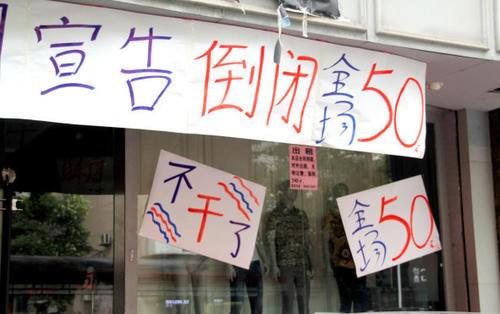 宣告倒闭全场50元
出租
不干了
全场50元